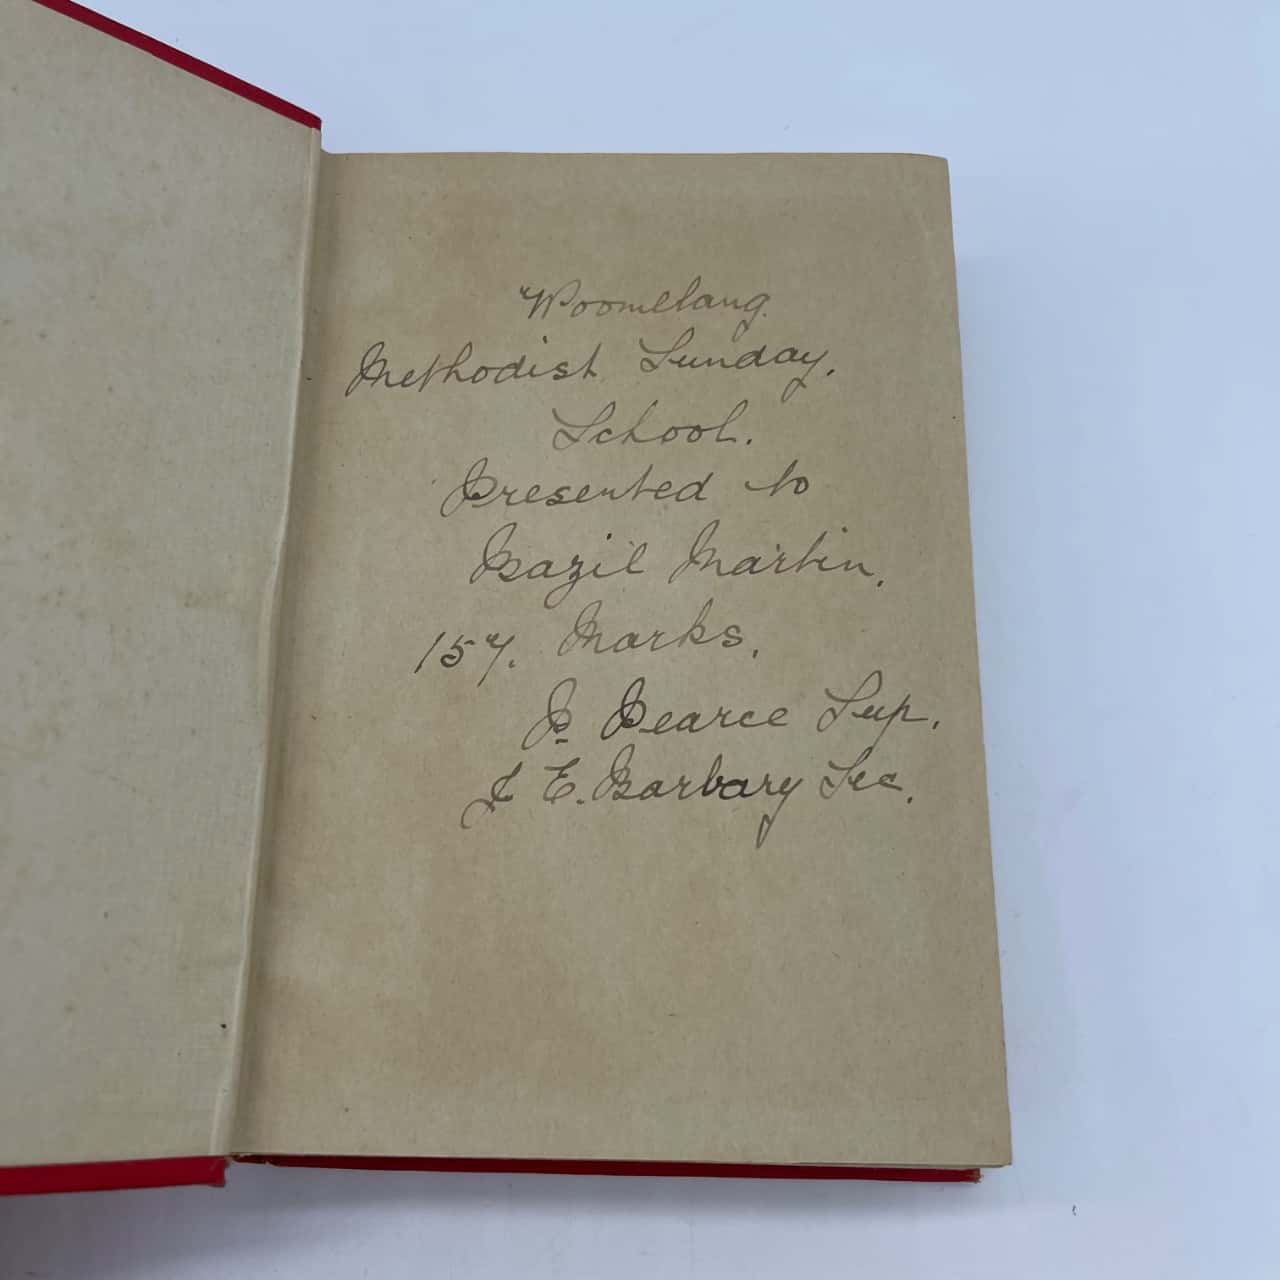 Woomelang.
Methodist Sunday,
School.
Presented to
Bazil Martin,
157. Marks,
P Pearce Sup,
J E. Barbary Sec,